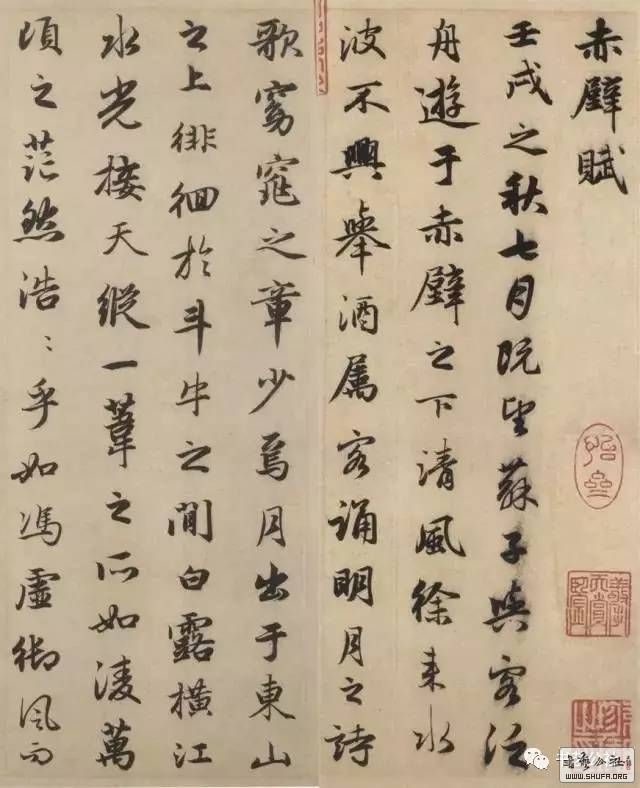 赤壁賦
壬戌之秋七月既望蘇子與客泛
舟遊于赤壁之下清風徐来水
波不興舉酒属客誦明月之詩
歌窈窕之章少焉月出于東山
之上徘徊於斗牛之間白露橫江
水光接天縱一葦之所如凌萬
頃之茫然浩〻乎如馮虛御風而
书艺公社
WWW.SHUFA.ORG